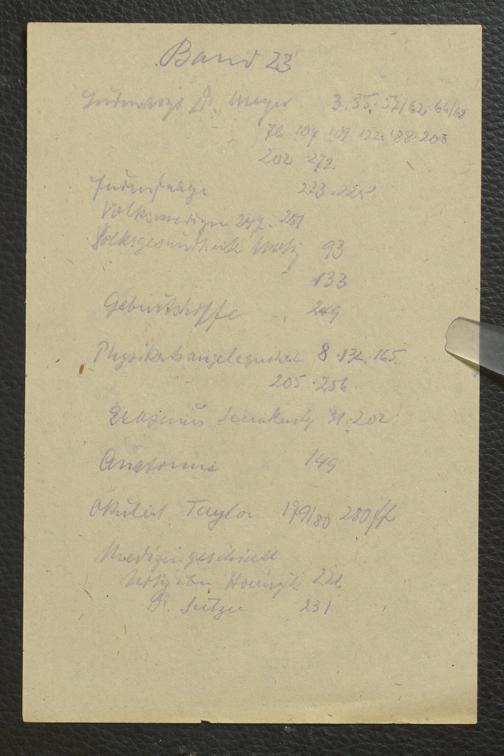 Band 23
Judenarzt Dr. Mayer 3. 35. 57/62. 64/68
76 104 109 122. 188. 203
202 272
Judenfrage 223. 225
Volksmedizin 247. 251
Volksgesundheit 93
133
Geburtshilfe 249
Physikatsangelegenheit 8. 132. 165.
205. 256.
Erasmus 31. 202
Anatomie 149
Okulist Taylor 179/80 280ff
Medizingeschichte
Hoernigk 221
Dr. 231